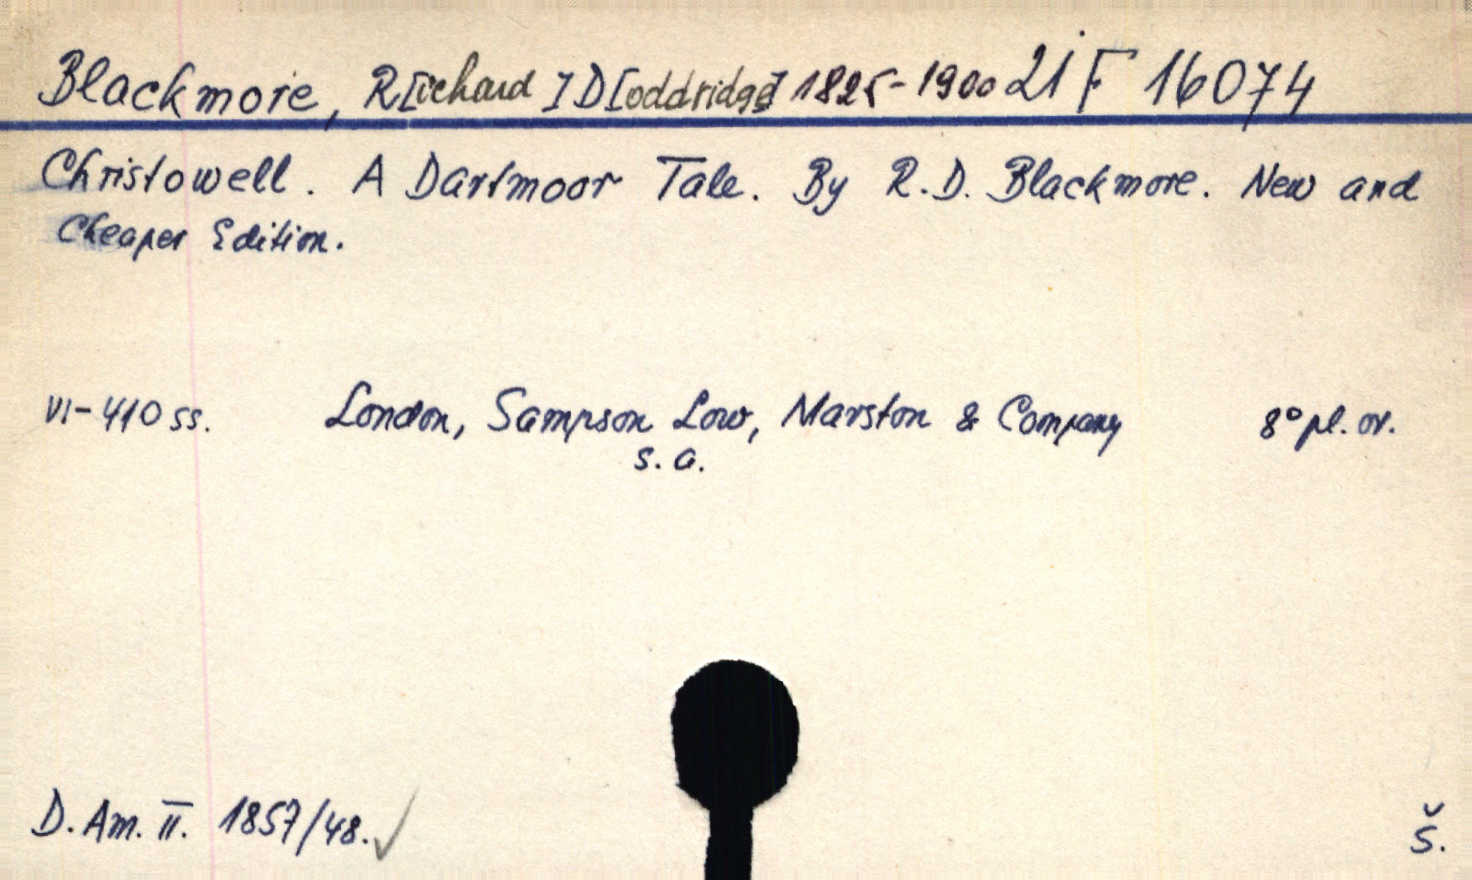 Blackmore, R[ichard] D[oddridge] 1825-1900 21 F 16074
Christowell. A Dartmoor Tale. By R.D. Blackmore. New and
Cheaper Edition.
VI-410 ss. London, Sampson Low, Marston & Company 8° pl. or.
s. a.
D. Am. II. 1857/48. ✓
Š.